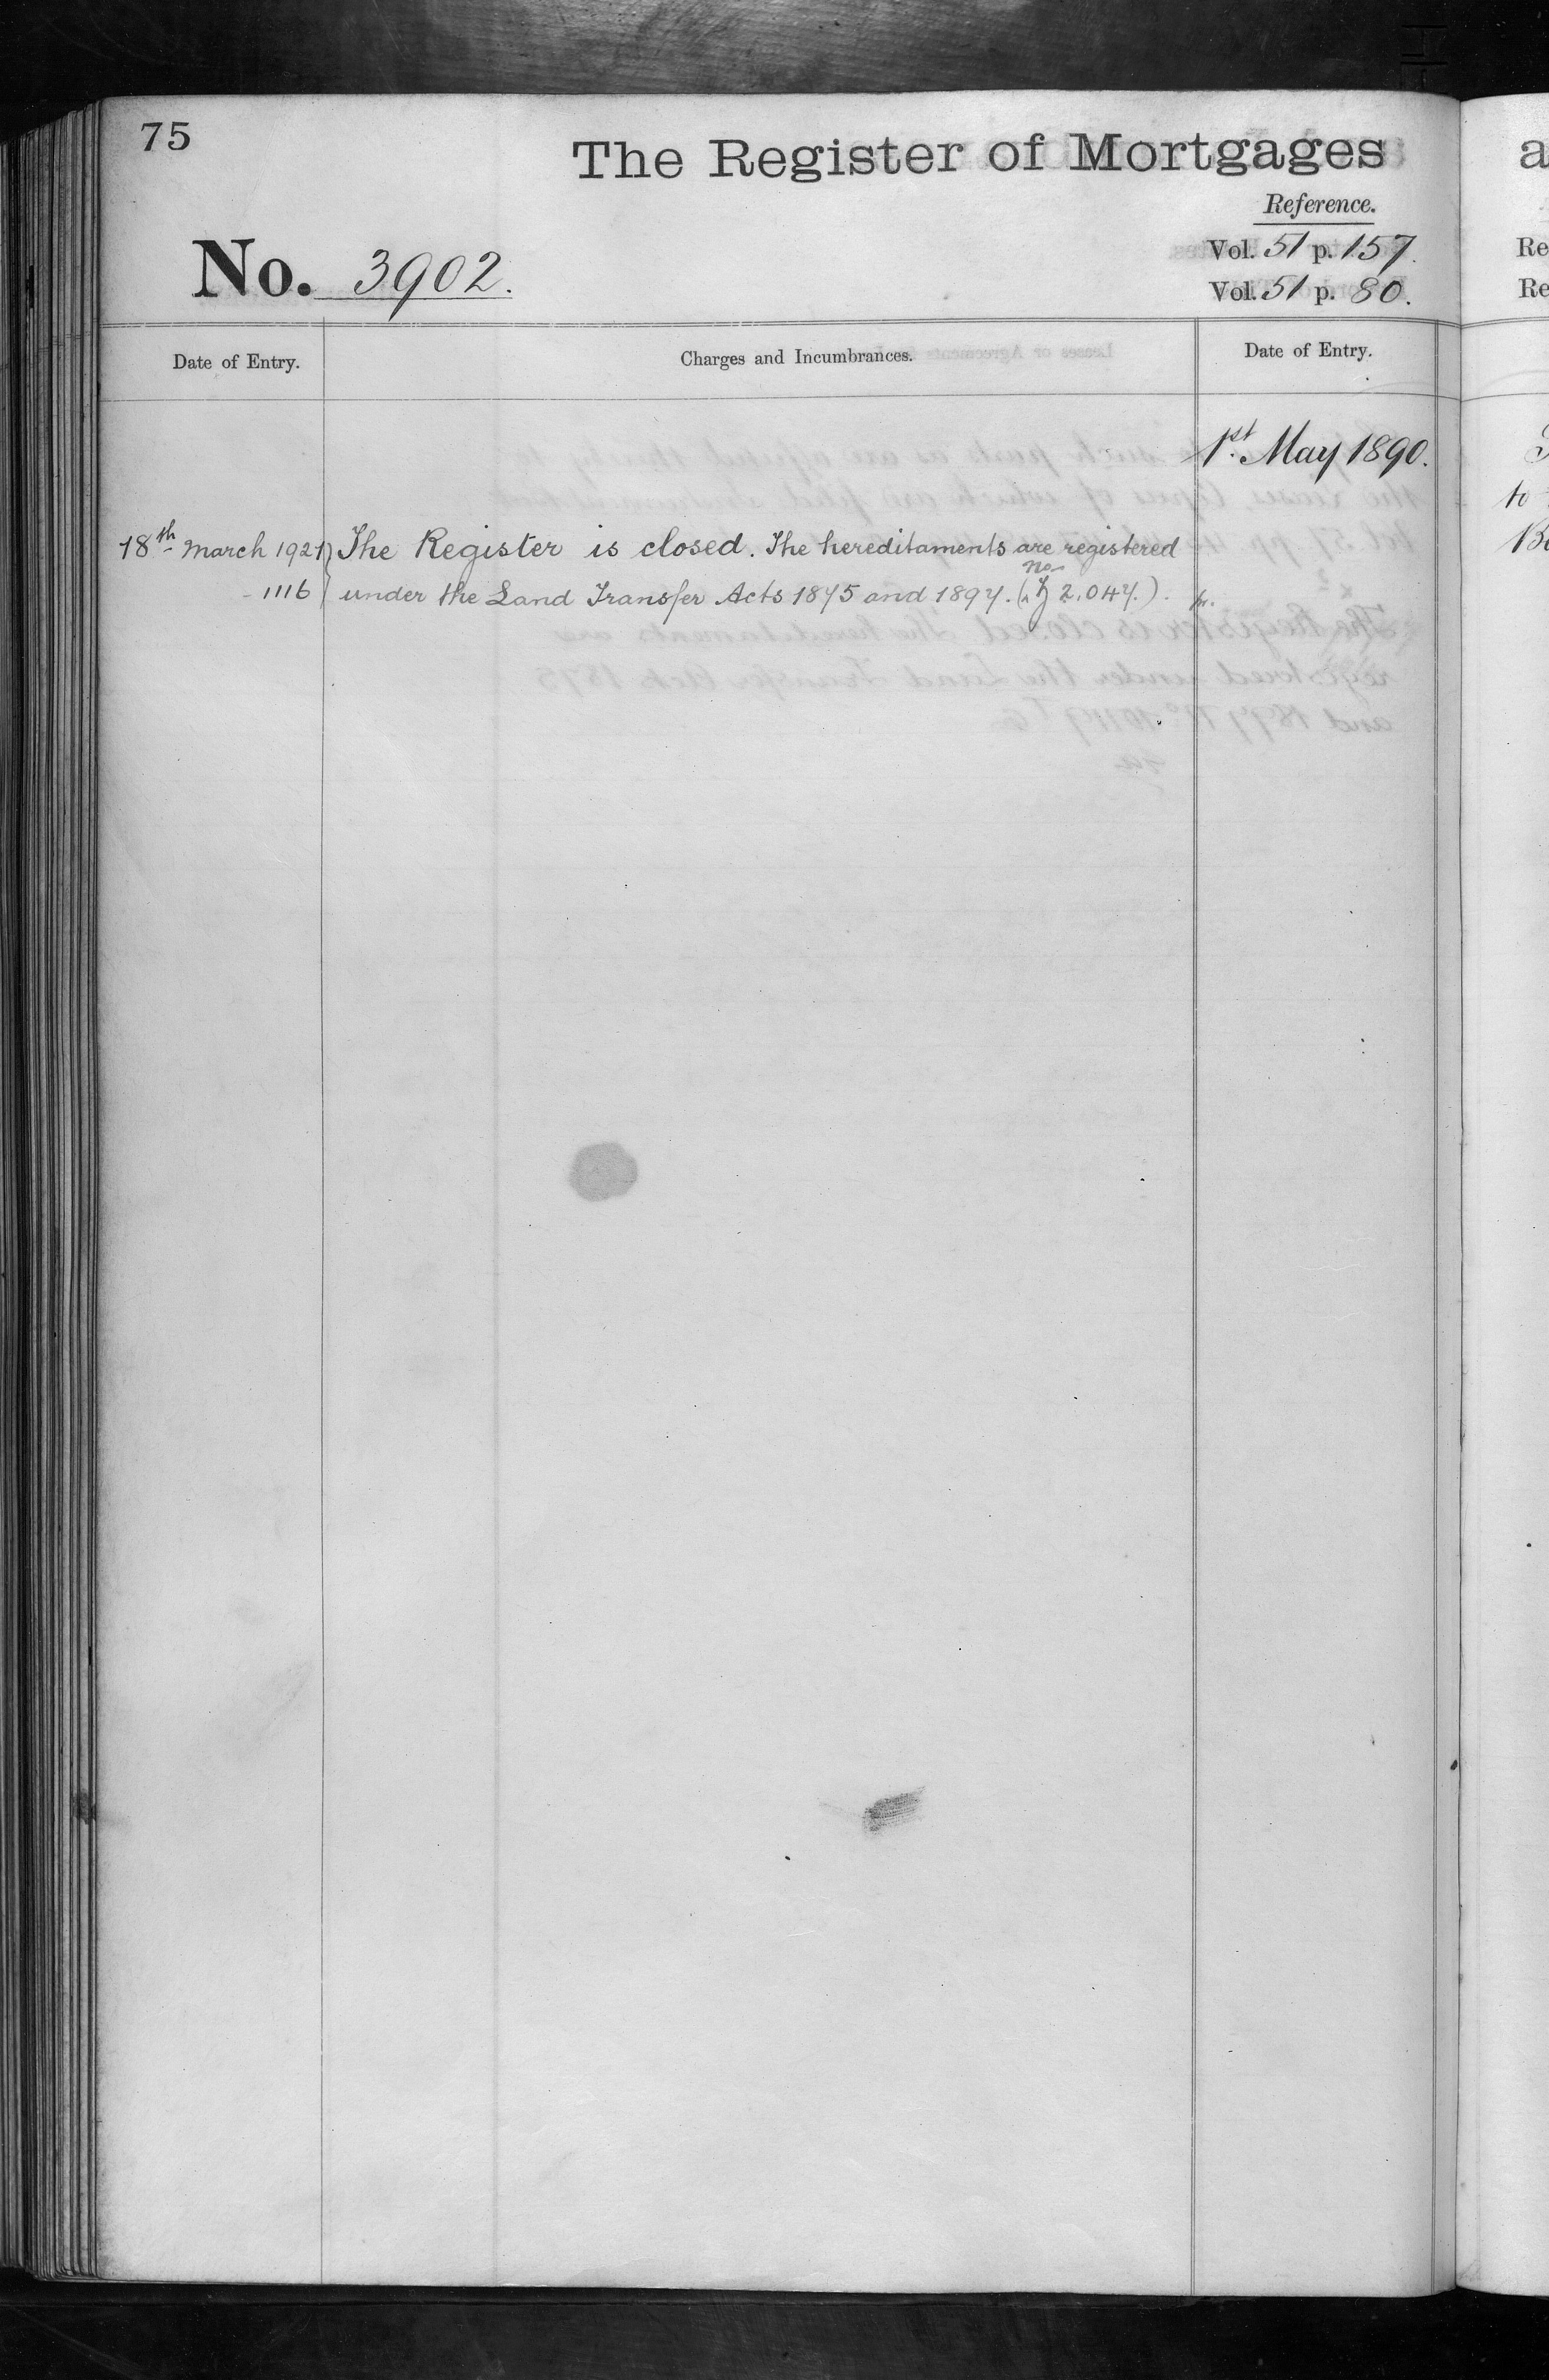 75
The Register of Mortgages
Reference.
Vol. 51 p. 157.
Vol. 51 p. 80.
No. 3902.
Date of Entry.
Charges and Incumbrances.
Date of Entry.
1st May 1890.
18th March 1921
1116
The Register is closed. The hereditaments are registered
under the Land Transfer Acts 1875 and 1897. (No 2,047.).
a
Re
Re
to